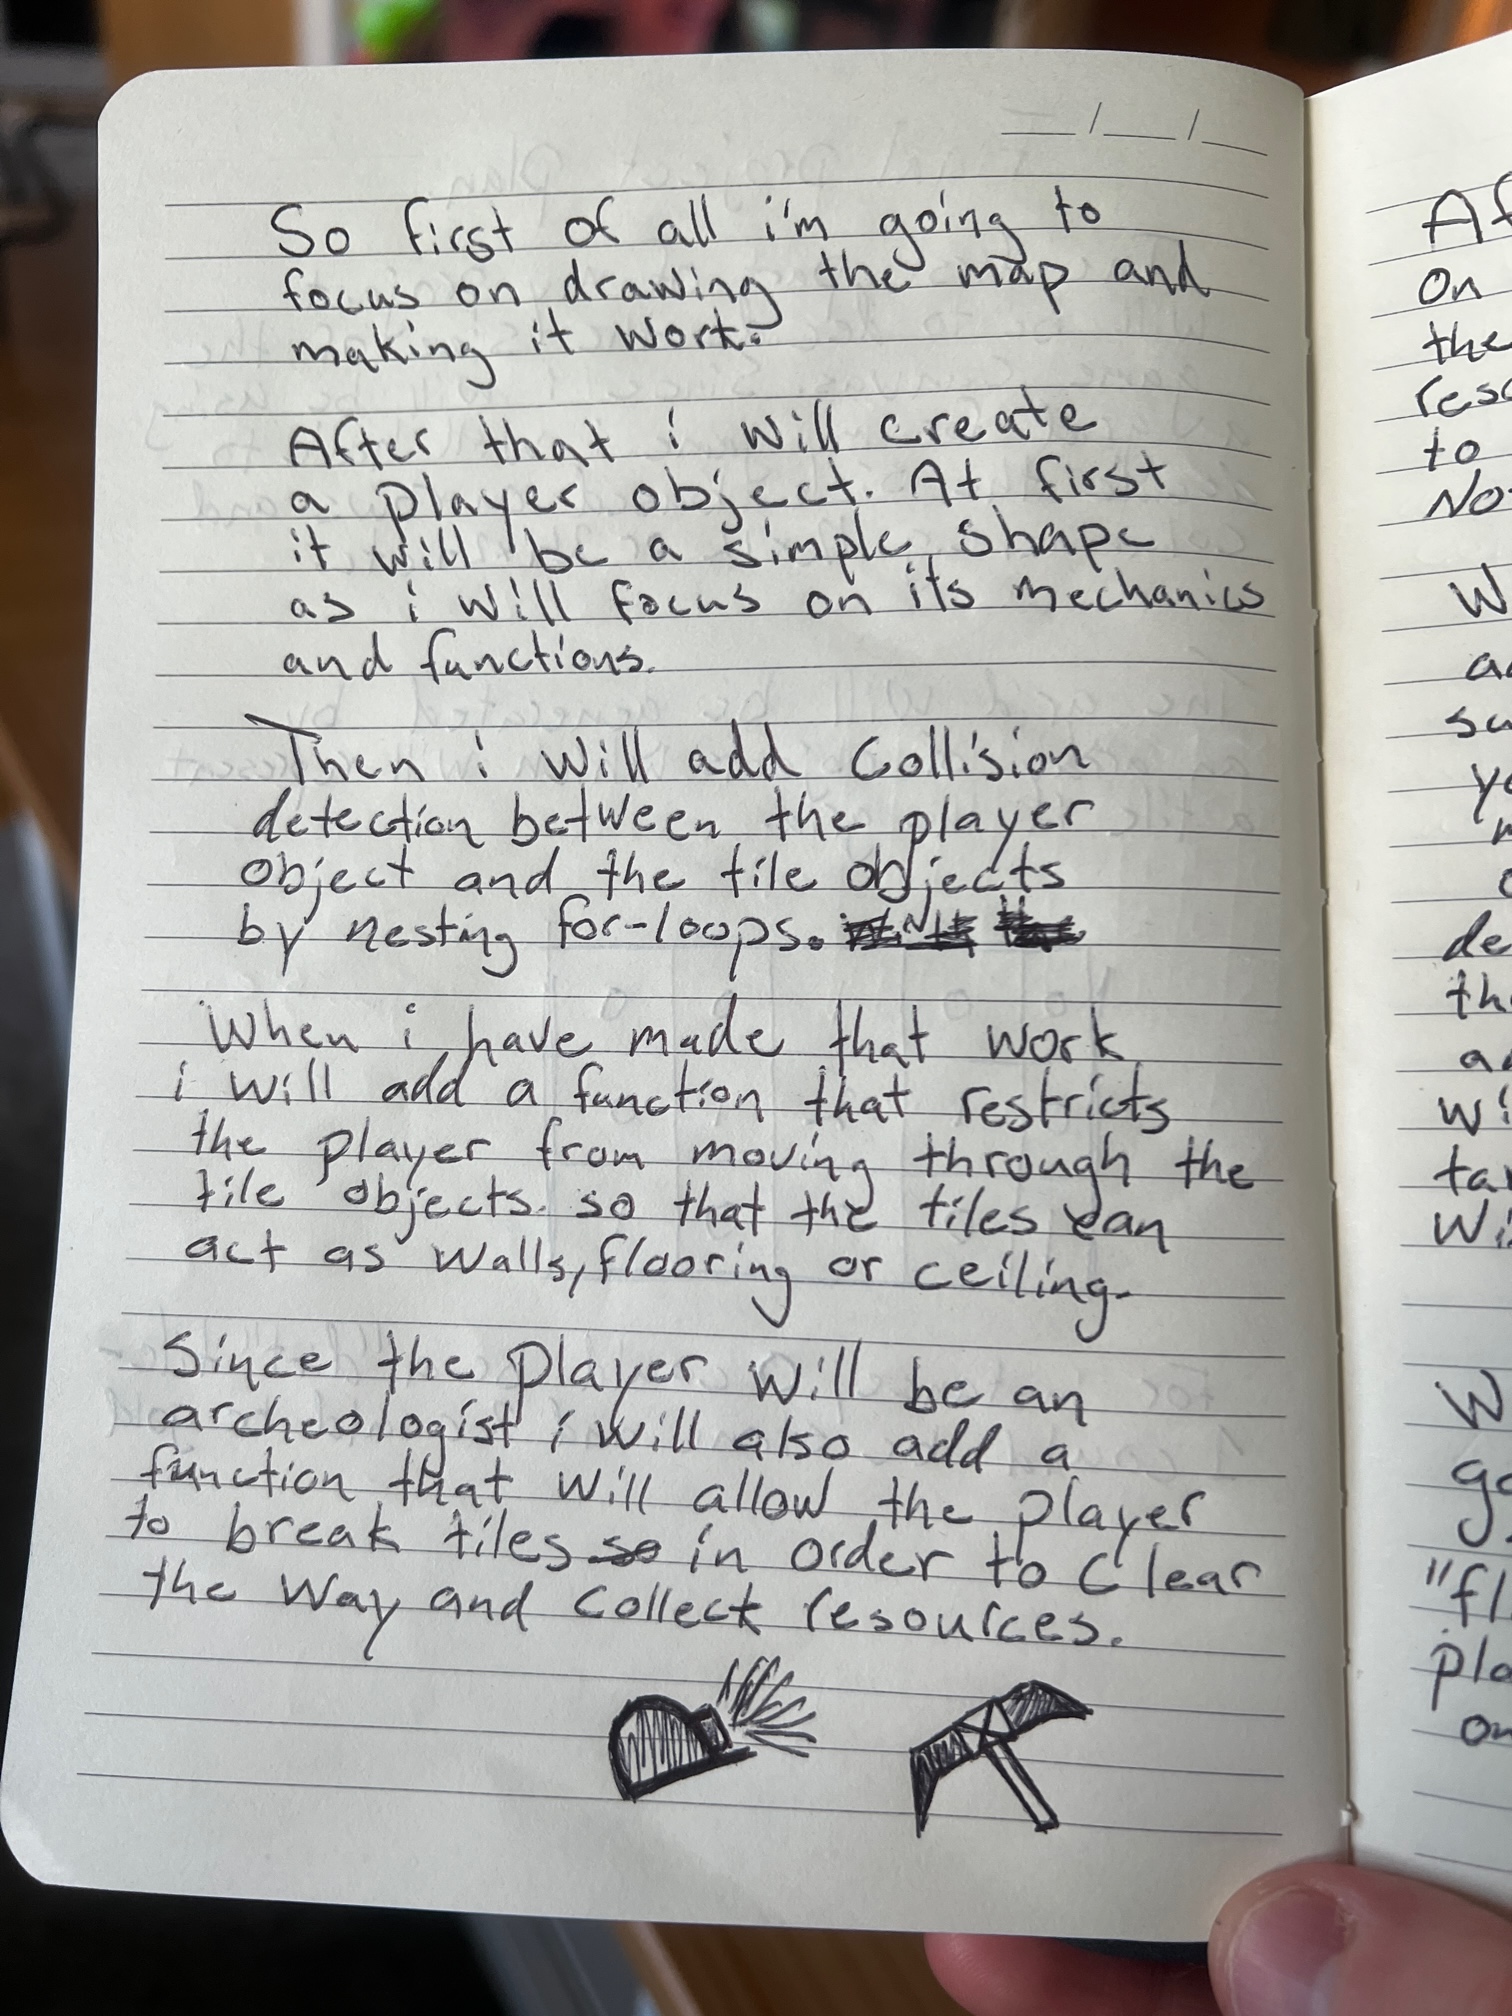 __/__/__
So first of all i'm going to
focus on drawing the map and
making it work.
After that i will create
a player object. At first
it will be a simple shape
as i will focus on its mechanics
and functions.
Then i will add collision
detection between the player
object and the tile objects
by nesting for-loops.
When i have made that work
i will add a function that restricts
the player from moving through the
tile objects. so that the tiles can
act as walls, flooring or ceiling.
Since the player will be an
archeologist i will also add a
function that will allow the player
to break tiles so in order to clear
the way and collect resources.
Af
on
the
reso
to
No
W
su
de
th
wi
ta
wi
W
go
"fl
pla
on